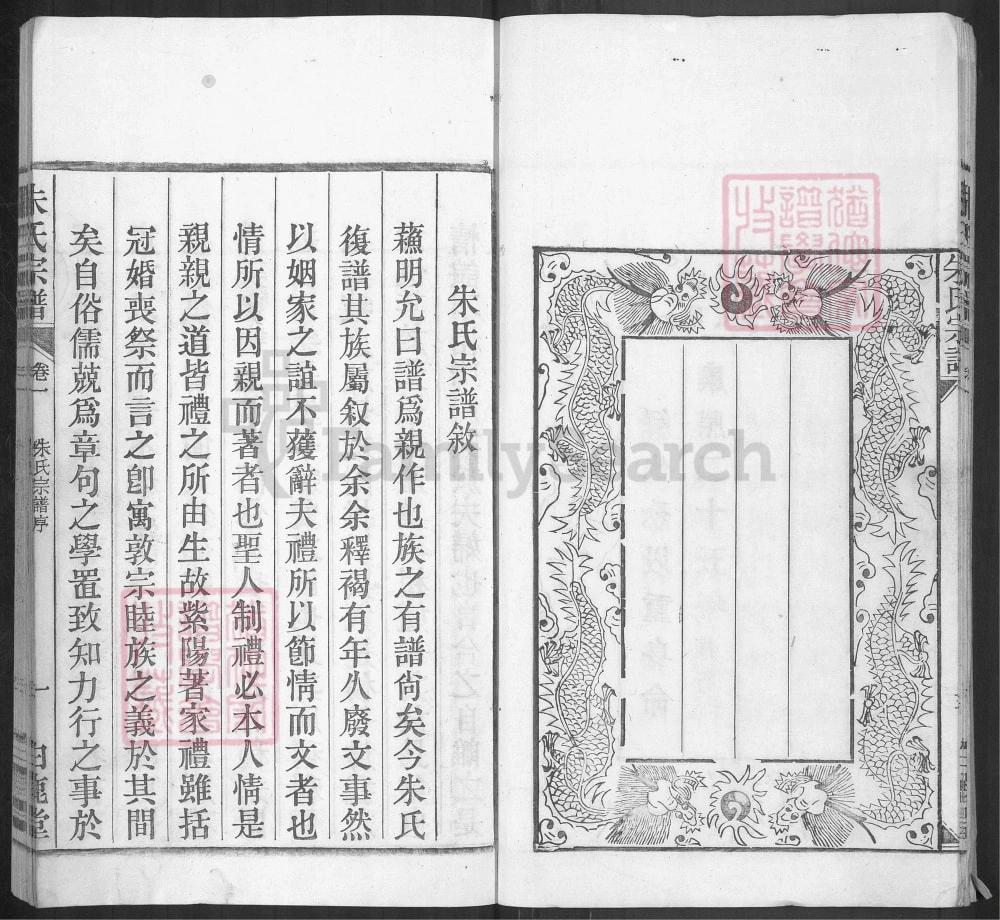 朱氏宗譜
朱氏宗譜敘
蘓明允曰譜爲親作也族之有譜尙矣今朱氏
復譜其族屬叙於余余釋褐有年久廢文事然
以姻家之誼不獲辭夫禮所以節情而文者也
情所以因親而著者也聖人制禮必本人情是
親親之道皆禮之所由生故紫陽著家禮雖括
冠婚喪祭而言之卽寓敦宗睦族之義於其間
矣自俗儒兢爲章句之學置致知力行之事於
朱氏宗譜 卷一 朱氏宗譜序 一 白鹿堂
FamilySearch